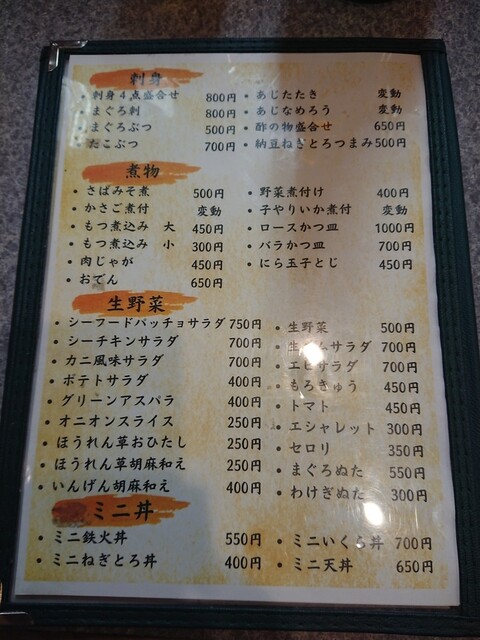 刺身
刺身4点盛合せ 800円
まぐろ刺 800円
まぐろぶつ 500円
たこぶつ 700円
・あじたたき 変動
・あじなめろう 変動
・酢の物盛合せ 650円
・納豆ねぎとろつまみ 500円
煮物
・さばみそ煮 500円
・かさご煮付 変動
・もつ煮込み 大 450円
・もつ煮込み 小 300円
・肉じゃが 450円
・おでん 650円
・野菜煮付け 400円
・子やりいか煮付 変動
・ロースかつ皿 1000円
・バラかつ皿 700円
・にら玉子とじ 450円
生野菜
・シーフードバッチョサラダ 750円
・シーチキンサラダ 700円
・カニ風味サラダ 700円
・ポテトサラダ 400円
・グリーンアスパラ 400円
・オニオンスライス 250円
・ほうれん草おひたし 250円
・ほうれん草胡麻和え 250円
・いんげん胡麻和え 400円
・生野菜 500円
サラダ 700円
・エビサラダ 700円
・もろきゅう 450円
・トマト 450円
・エシャレット 300円
・セロリ 350円
・まぐろぬた 550円
・わけぎぬた 300円
ミニ丼
・ミニ鉄火丼 550円
・ミニねぎとろ丼 400円
・ミニいくら丼 700円
・ミニ天丼 650円